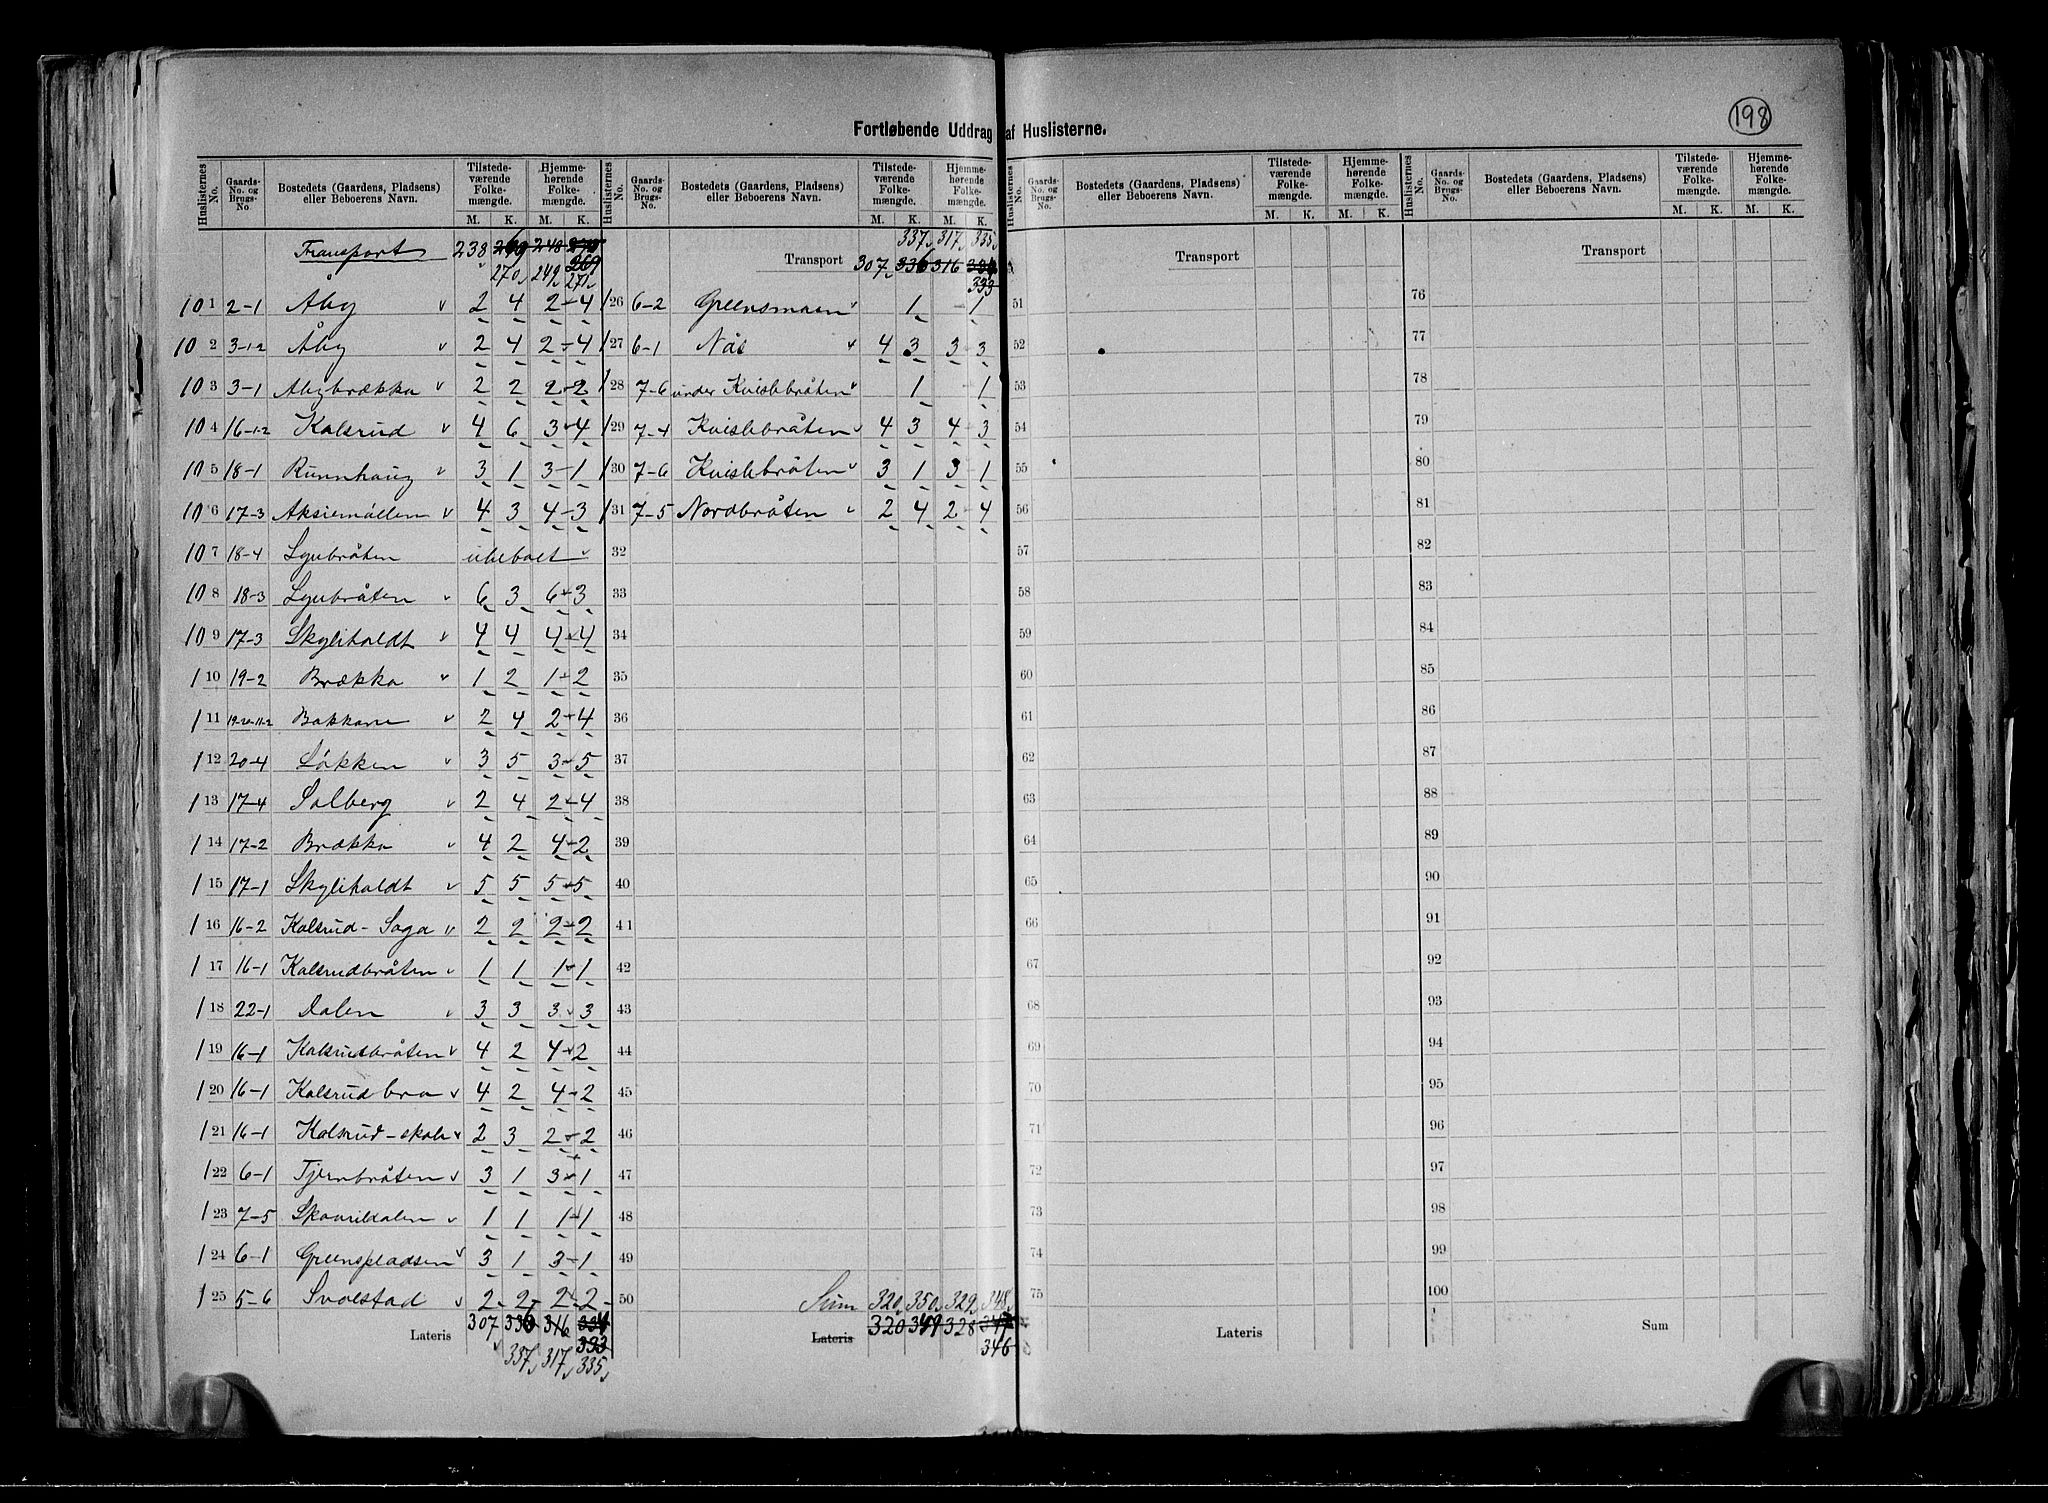 198
Fortløbende Uddrag af Huslisterne.
Huslisternes No. Gaards-No. og Brugs-No. Bostedets (Gaardens, Pladsens) eller Beboerens Navn. Tilstedeværende Folkemængde. M. K. Hjemmehørende Folkemængde. M. K.
Transport 238 270 249 271
101 2-1 Åby 2 4 2-4
102 3-1-2 Åby 2 4 2-4
103 3-1 Åbybrækka 2 2 2-2
104 16-1-2 Kalsrud 4 6 3-4
105 18-1 Runnhaug 3 1 3-1
106 17-3 Aksiemöllen 4 3 4-3
107 18-4 Lyubråten ubeboet
108 18-3 Lyubråten 6 3 6-3
109 17-3 Skyliholdt 4 4 4-4
110 19-2 Brækka 1 2 1-2
111 19-20-11-2 Bakkane 2 4 2-4
112 20-4 Lökken 3 5 3-5
113 17-4 Solberg 2 4 2-4
114 17-2 Brækka 4 2 4-2
115 17-1 Skyliholdt 5 5 5-5
116 16-2 Kalsrud-Saga 2 2 2-2
117 16-1 Kalsrudbråten 1 1 1-1
118 22-1 Dalen 3 3 3 3
119 16-1 Kalsrudbråten 4 2 4-2
120 16-1 Kalsrud bra 4 2 4-2
121 16-1 Kalsrud-skole 2 3 2-2
122 6-1 Tjernbråten 3 1 3-1
123 7-5 Skavrildalen 1 1 1-1
124 6-1 Greenspladsen 3 1 3-1
125 5-6 Svalstad 2-2-2-2-
Lateris 307 336 316 334
333
337 317 335
Huslisternes No. Gaards-No. og Brugs-No. Bostedets (Gaardens, Pladsens) eller Beboerens Navn. Tilstedeværende Folkemængde. M. K. Hjemmehørende Folkemængde. M. K.
337 317 335
Transport 307 336 316 334
333
126 6-2 Greensmoen 1 -1
127 6-1 Näs 4 3 3-3
128 7-6 under Kvislebråten 1 -1
129 7-4 Kvislebråten 4 3 4-3
130 7-6 Kvislebråten 3 1 3-1
131 7-5 Nordbråten 2 4 2-4
32
33
34
35
36
37
38
39
40
41
42
43
44
45
46
47
48
49
50 Sum 320 350 329 348
Lateris 320 349 328 347
346
Huslisternes No. Gaards-No. og Brugs-No. Bostedets (Gaardens, Pladsens) eller Beboerens Navn. Tilstedeværende Folkemængde. M. K. Hjemmehørende Folkemængde. M. K.
Transport
51
52
53
54
55
56
57
58
59
60
61
62
63
64
65
66
67
68
69
70
71
72
73
74
75
Lateris
Huslisternes No. Gaards-No. og Brugs-No. Bostedets (Gaardens, Pladsens) eller Beboerens Navn. Tilstedeværende Folkemængde. M. K. Hjemmehørende Folkemængde. M. K.
Transport
76
77
78
79
80
81
82
83
84
85
86
87
88
89
90
91
92
93
94
95
96
97
98
99
100
Sum